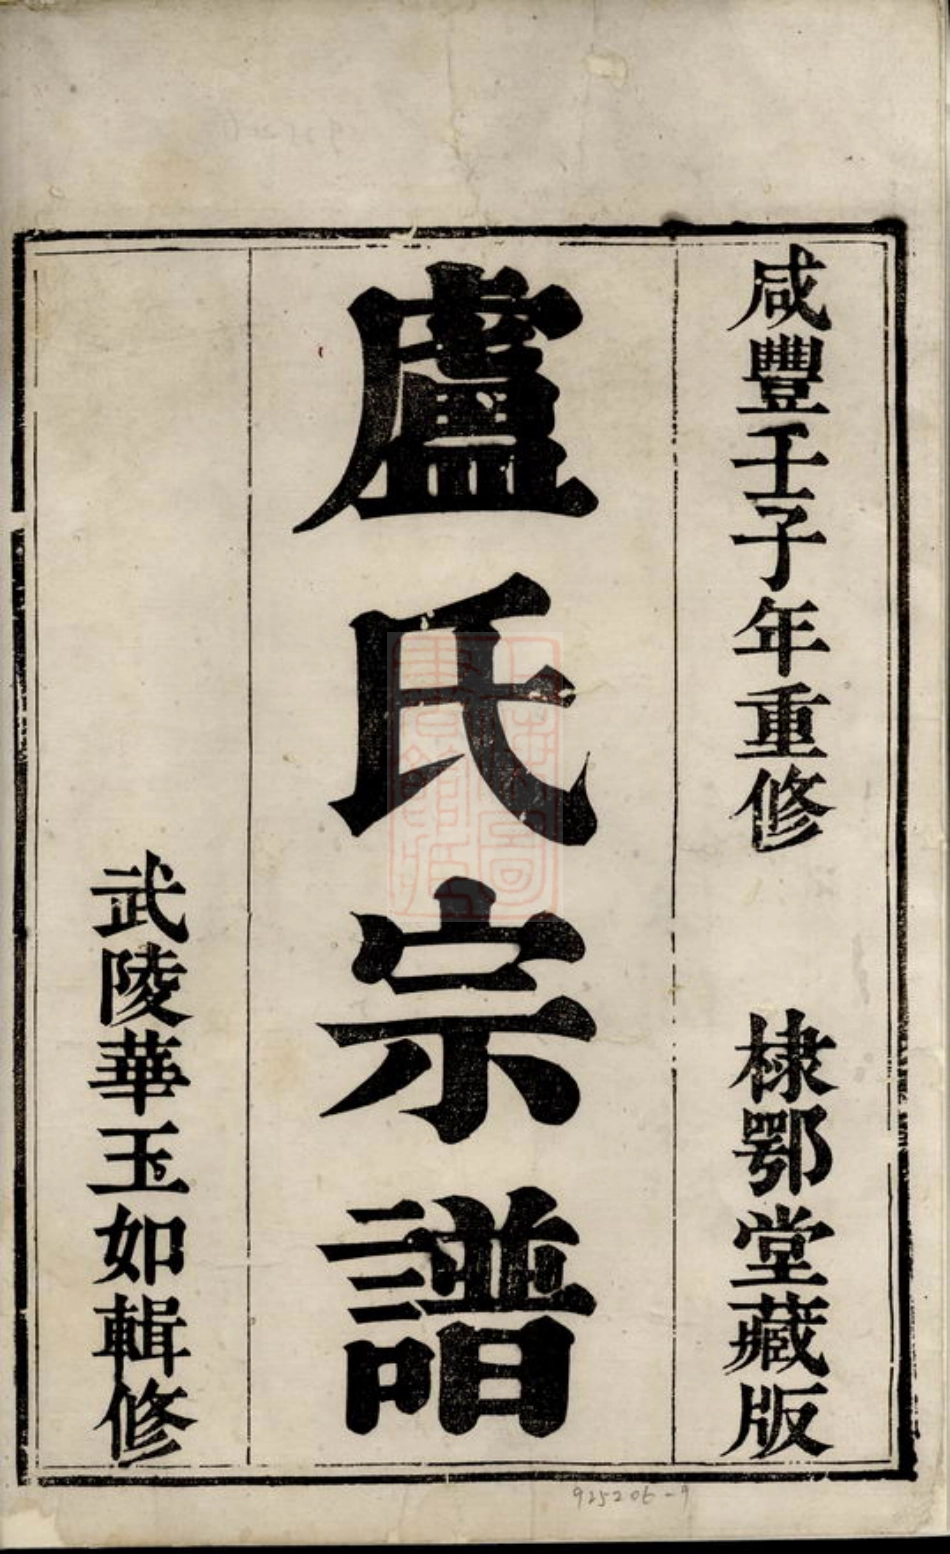 咸豐壬子年重修 棣鄂堂藏版
盧氏宗譜
武陵華玉如輯修
925206-9